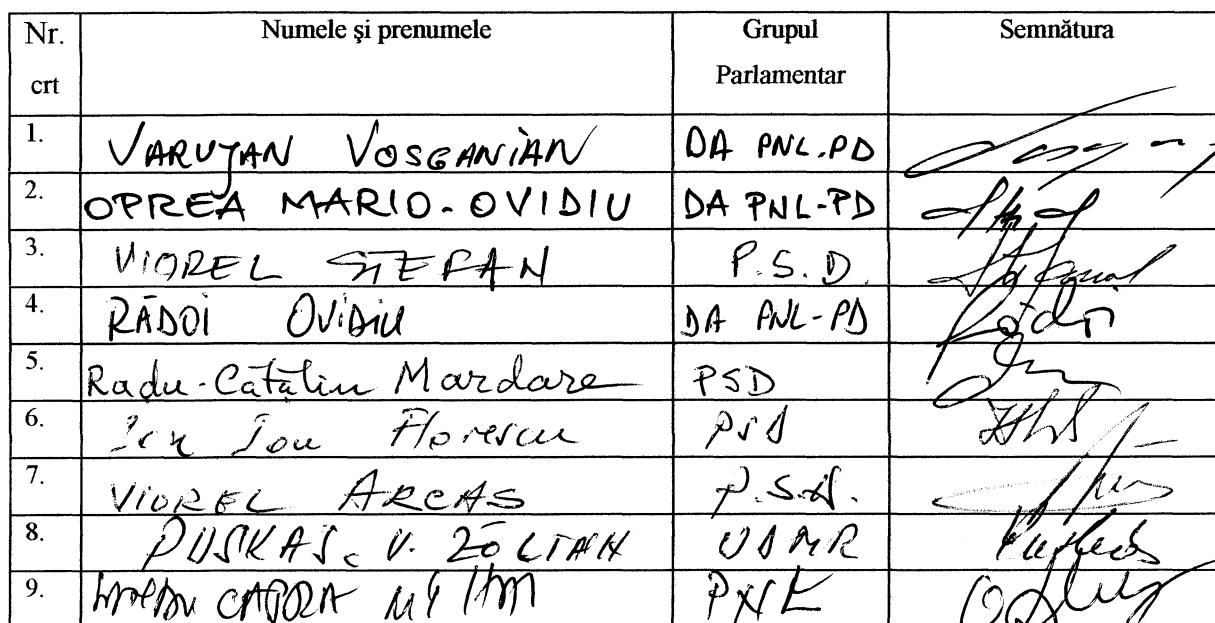 Nr. crt Numele şi prenumele Grupul Parlamentar Semnătura
1. VARUJAN VOSGANIAN DA PNL.PD
2. OPREA MARIO-OVIDIU DA PNL-PD
3. VIOREL ŞTEFAN P.S.D.
4. RĂDOI OViDiU DA PNL-PD
5. Radu-Cătălin Mardare PSD
6. Ion Florescu PSD
7. VIOREL ARCAS P.S.D.
8. PUSKAS. V. ZOLTAN UDMR
9.